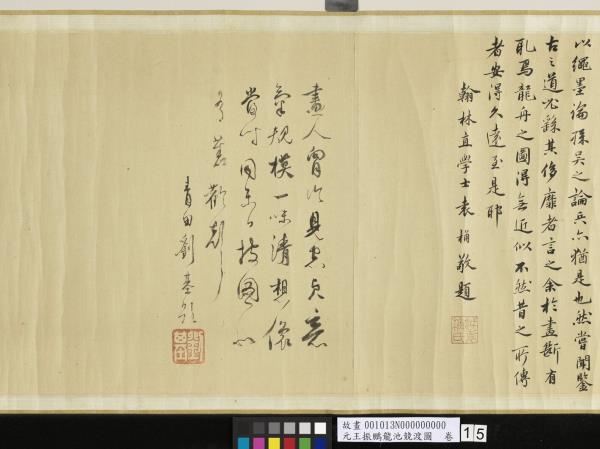 以繩墨論孫吳之論兵亦猶是也然嘗聞鑒
古之道必繇其侈靡者言之余於畫斷有
取焉龍舟之圖得無近似不然昔之所傳
者安得久遠至是耶
翰林直學士袁桷敬題
畫人胷次見忠貞意
氣規模一味清想像
當時同樂披圖
青田劉基題
故畫 001013N000000000
元王振鵬龍池競渡圖 卷
15